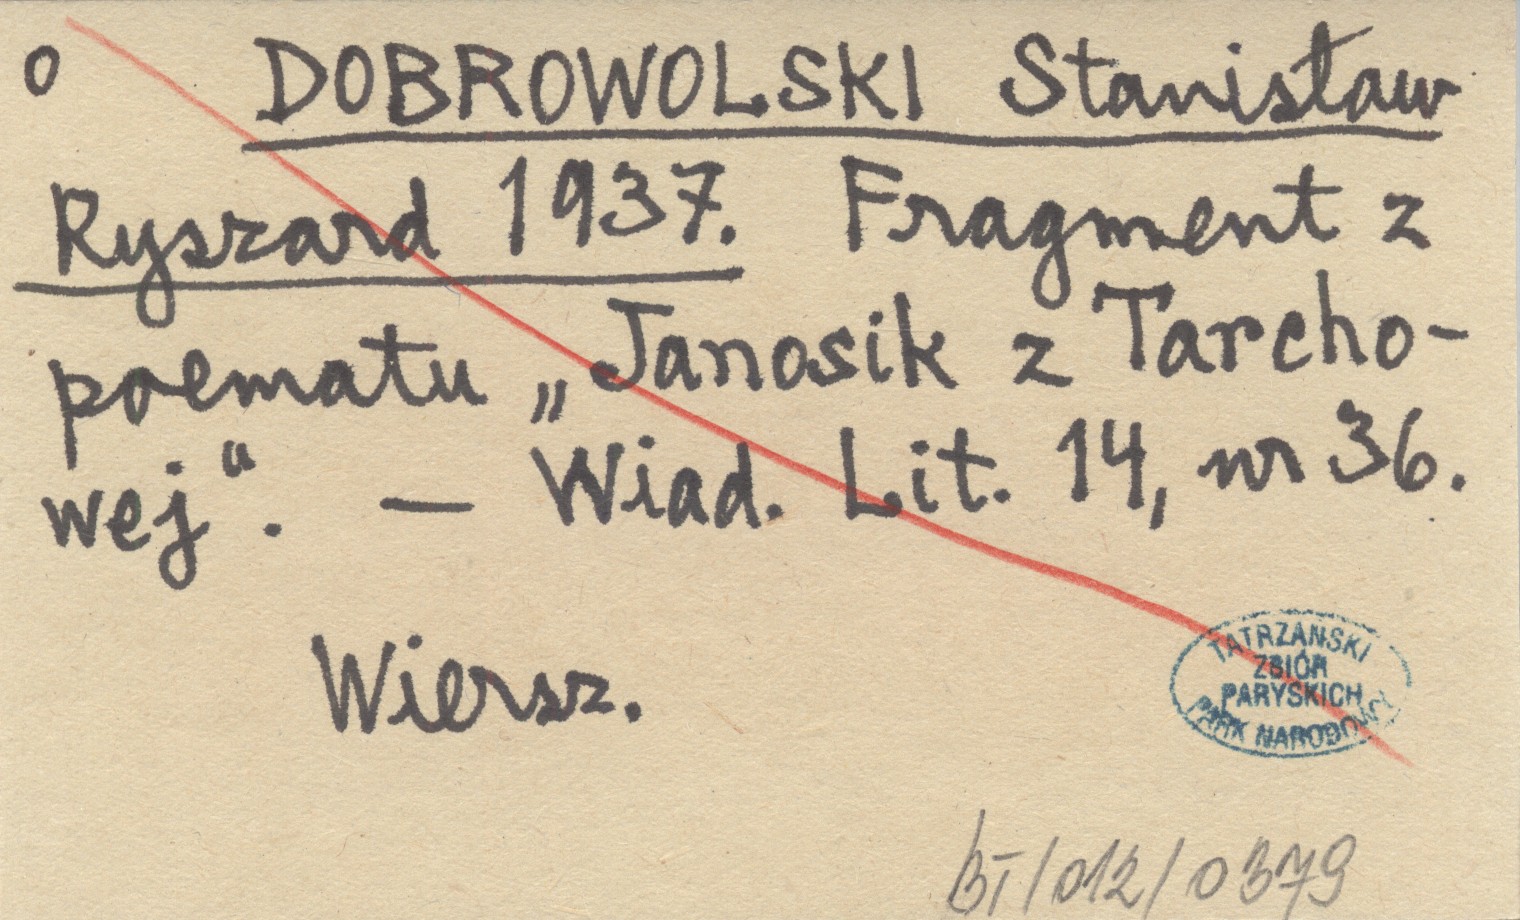 o DOBROWOLSKI Stanisław
Ryszard 1937. Fragment z
poematu „Janosik z Tarcho-
wej“. — Wiad. Lit. 14, nr 36.
Wiersz.
TATRZAŃSKI
ZBIÓR
PARYSKICH
PARK NARODOWY
BT/012/0379